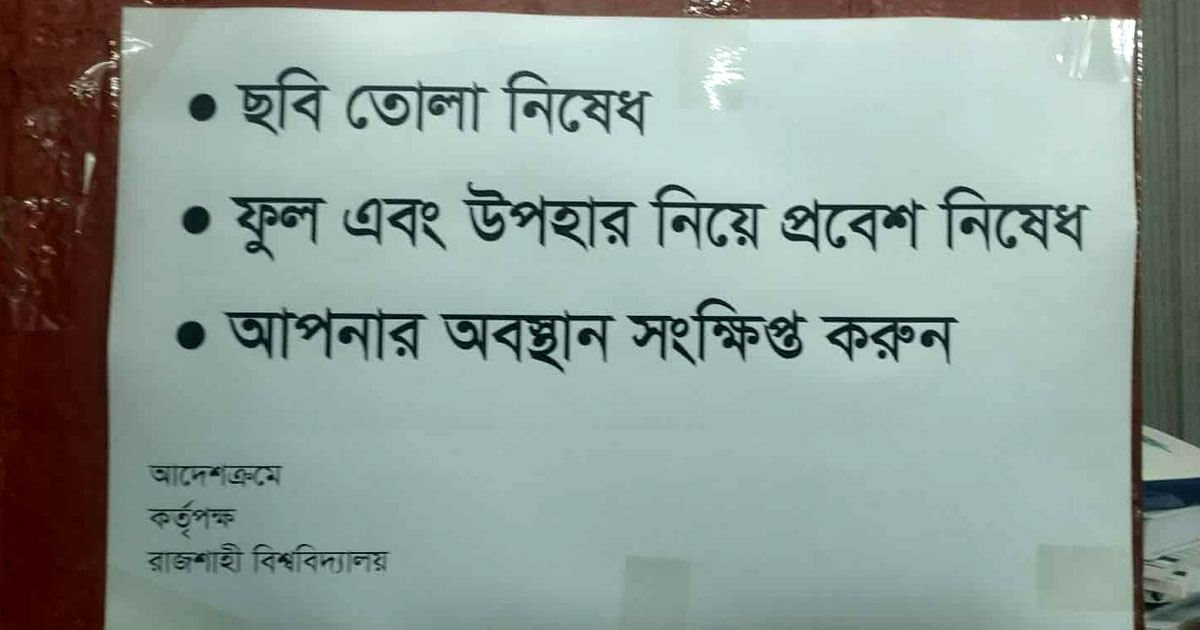 • ছবি তোলা নিষেধ
• ফুল এবং উপহার নিয়ে প্রবেশ নিষেধ
• আপনার অবস্থান সংক্ষিপ্ত করুন
আদেশক্রমে
কর্তৃপক্ষ
রাজশাহী বিশ্ববিদ্যালয়